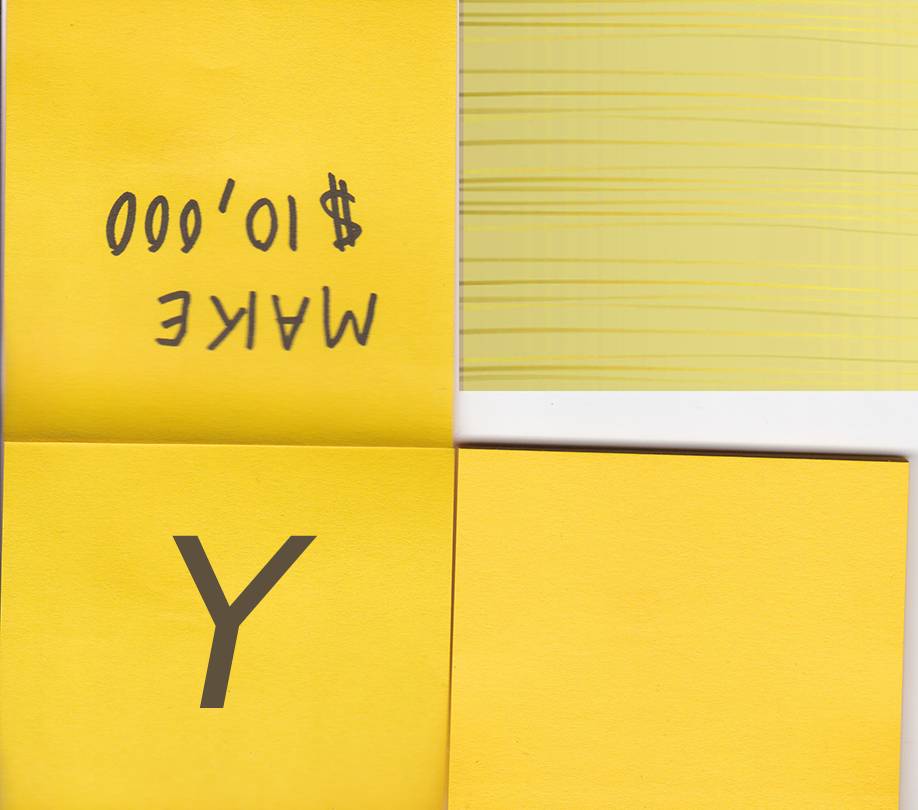 MAKE
$10,000
Y